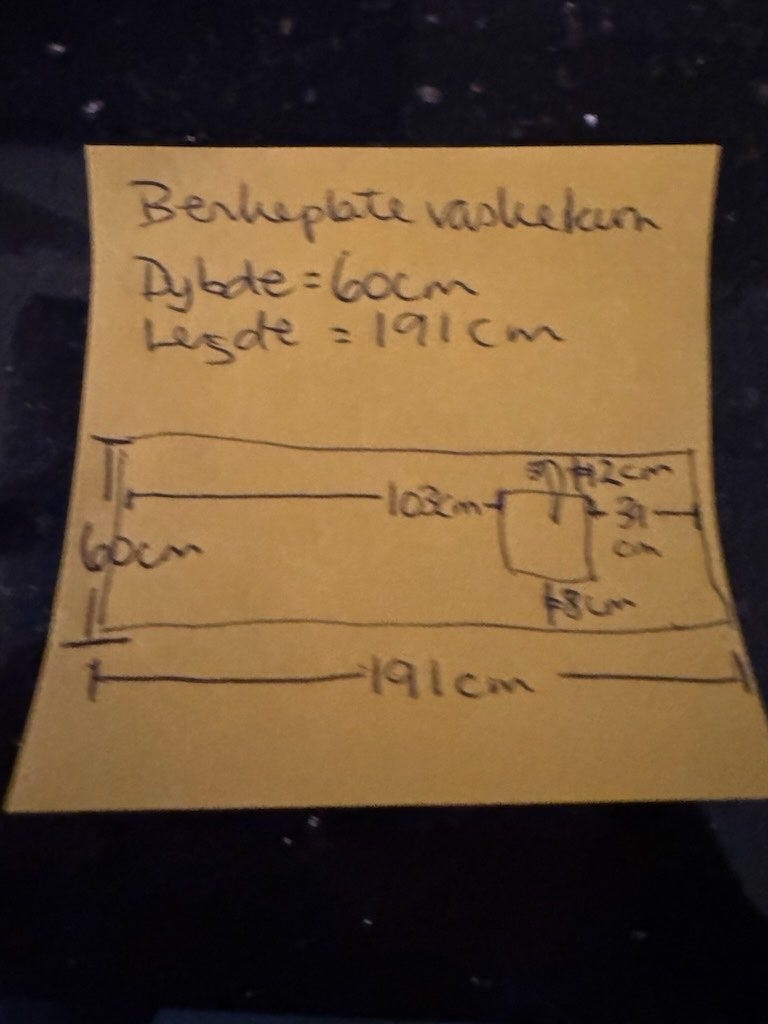 Benkeplate vaskekum
Dybde = 60cm
Lengde = 191cm
12cm
103cm
39
cm
60cm
8cm
191cm